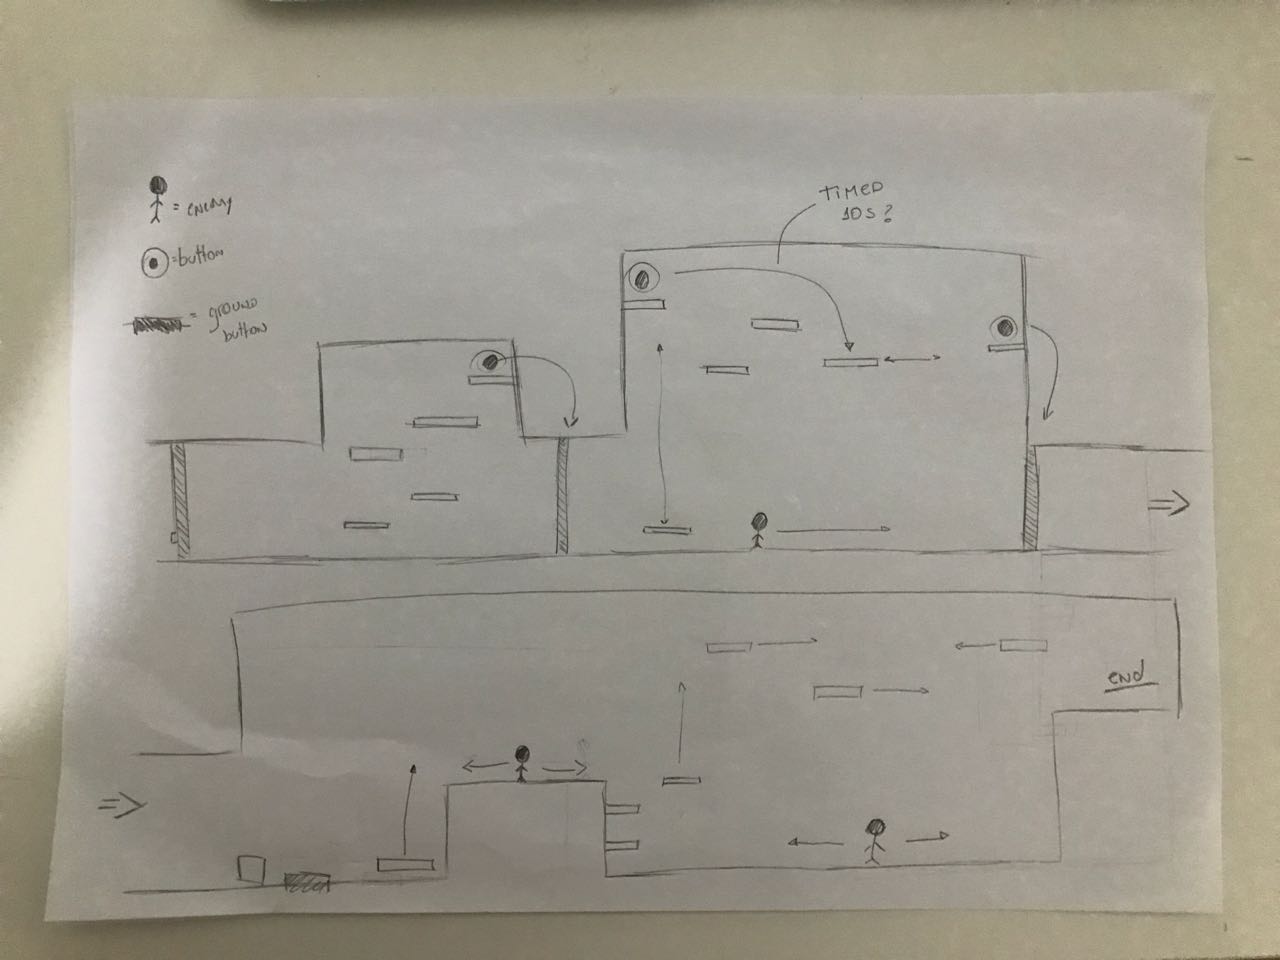 = enemy
= button
= GROUND
button
TIMED
10s?
end